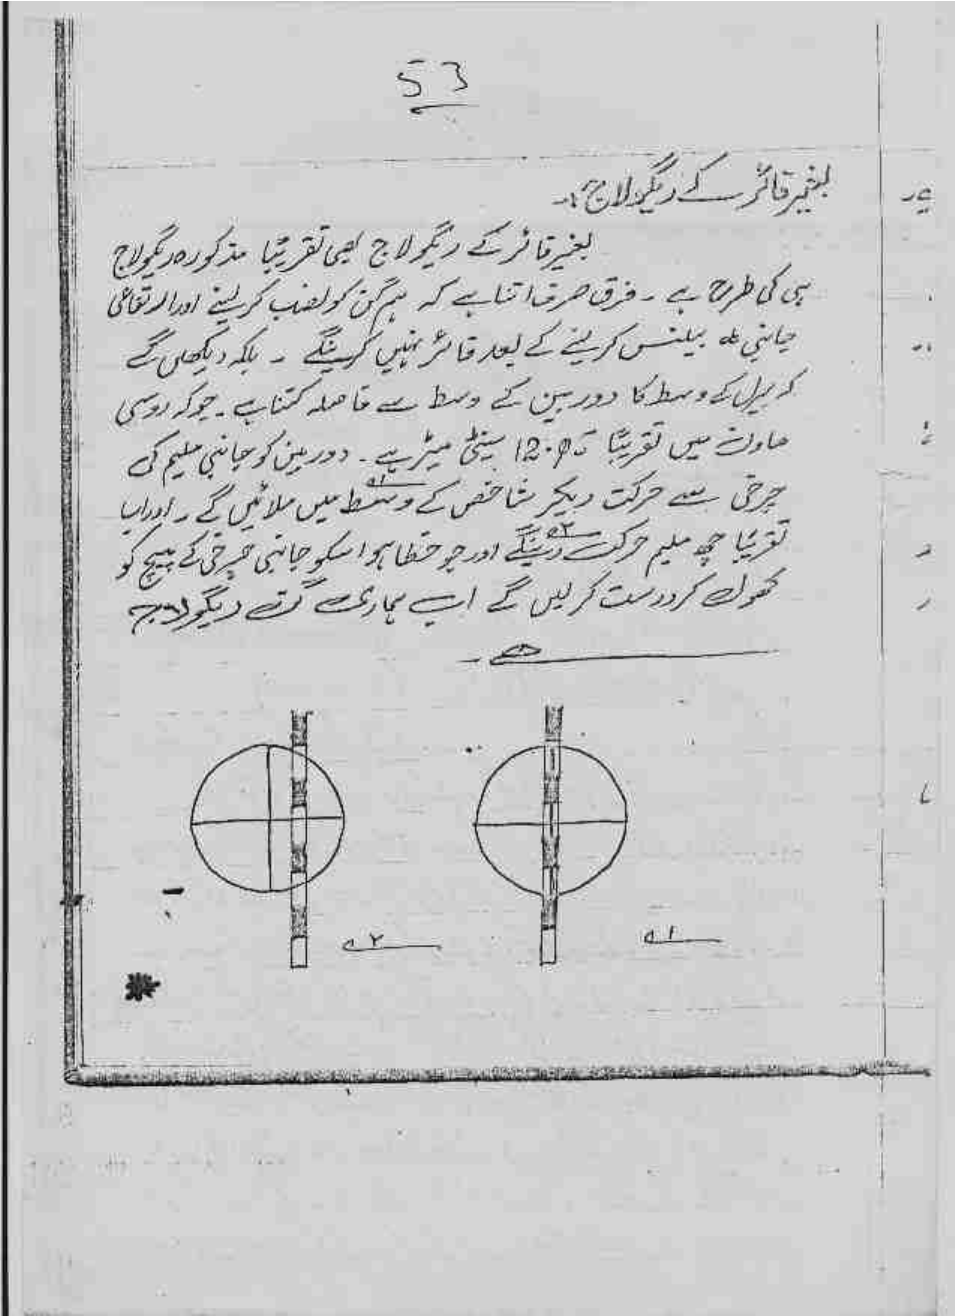 53
بغیر فائر کے ریگولاج :۔
بغیر فائر کے ریگولاج بھی تقریباً مذکورہ ریگولاج
ہی کی طرح ہے ۔ فرق صرف اتنا ہے کہ ہم گن کو نصب کر لینے اور ارتفاعی
جانبی بیلنس کر لینے کے بعد فائر نہیں کرینگے ۔ بلکہ دیکھیں گے
کہ بیرل کے وسط کا دوربین کے وسط سے فاصلہ کتنا ہے ۔ جو کہ روسی
ماڈل میں تقریباً سینٹی میٹر ہے ۔ دوربین کو جانبی ملیم کی
چرخی سے حرکت دیکر شاخص کے وسط میں ملائیں گے ۔ اور اب
۱
تقریباً چھ ملیم حرکت دینگے اور جو خطا ہو اسکو جانبی چرخی کے پیچ کو
۲
کھول کر درست کر لیں گے اب ہماری گن ریگولاج
ہے ۔
۲
۱